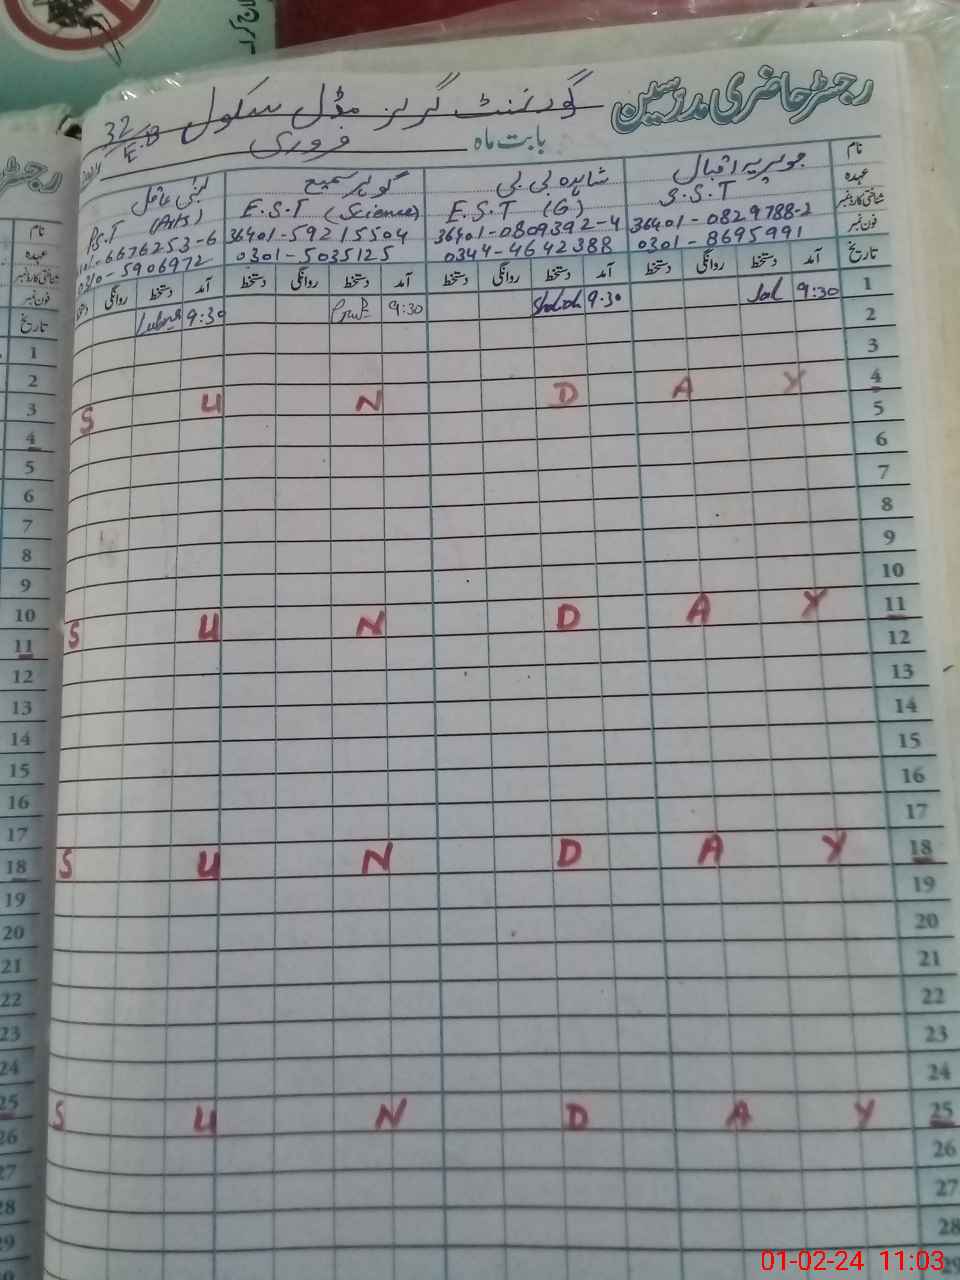 رجسٹر حاضری مدرسین
گورنمنٹ گرلز مڈل سکول 32/E.B
بابت ماہ فروری
نام جویریہ اقبال شاہدہ بی بی گوہر سمیع
عہدہ S.S.T E.S.T (G) E.S.T (Science) P.S.T (Arts)
شناختی کارڈ نمبر 36401-0829788-2 36401-0809392-4 36401-59215504 6676253-6
فون نمبر 0301-8695991 0344-4642388 0301-5035125 0310-5906972
تاریخ آمد دستخط روانگی دستخط آمد دستخط روانگی دستخط آمد دستخط روانگی دستخط آمد دستخط روانگی
1 9:30 9:30 9:30 9:30
2
3
4 S U N D A Y
5
6
7
8
9
10
11 S U N D A Y
12
13
14
15
16
17
18 S U N D A Y
19
20
21
22
23
24
25 S U N D A Y
26
27
28
29
نام
عہدہ
شناختی کارڈ نمبر
فون نمبر
تاریخ
1
2
3
4
5
6
7
8
9
10
11
12
13
14
15
16
17
18
19
20
21
22
23
24
25
26
27
28
29
01-02-24 11:03